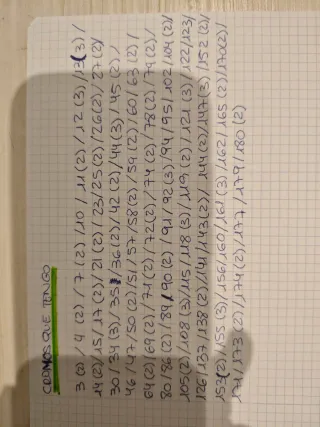 CROMOS QUE TENGO
3(2) / 4 (2) / 7 (2) / 10 / 11(2) / 12 (3) / 13(3) /
14(2) / 15 / 17(2) / 21(2) / 23 / 25(2) / 26(2) / 27(2) /
30 / 34(3) / 35 / 36(2) / 42(2) / 44(3) / 45(2) /
46 / 47 / 50(2) / 51 / 57 / 58(2) / 59(2) / 60 / 63(2) /
64(2) / 69(2) / 71(2) / 72(2) / 74(2) / 78(2) / 79(2) /
80 / 86(2) / 89 / 90(2) / 91 / 92(3) / 94 / 95 / 102 / 104(2) /
105(2) / 108(3) / 115 / 118(3) / 119(2) / 121(3) / 122 / 123 /
126 / 137 / 138(2) / 141 / 143(2) / 144(2) / 147(3) / 152(2) /
153(2) / 155(3) / 156 / 160 / 161(3) / 162 / 165(2) / 170(2) /
171 / 173(2) / 174(2) / 177 / 179 / 180(2)